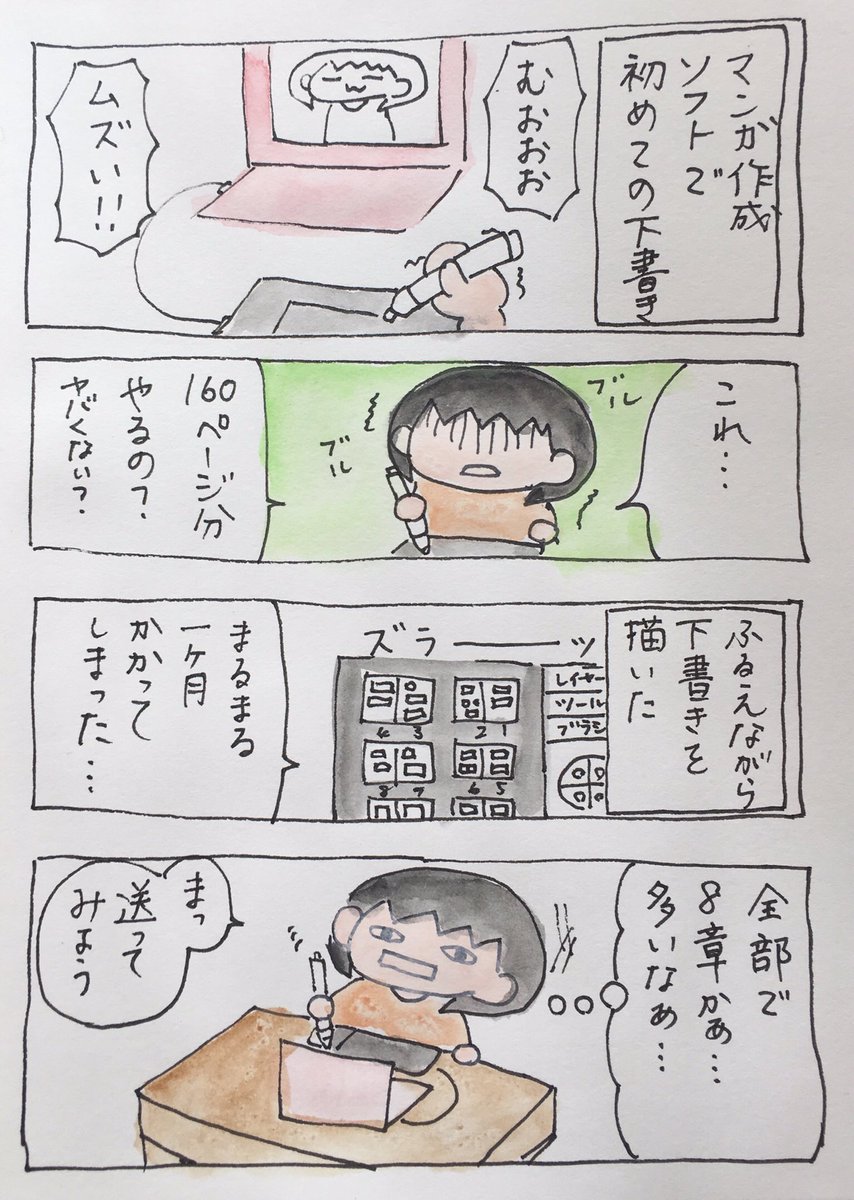 マンガ作成
ソフトで
初めての下書き
むおおお
ムズい!!
これ…
ブル
ブル
160ページ分
やるの?
ヤバくない?
ふるえながら
下書きを
描いた
ズラーーッ
レイヤー
ツール
ブラシ
1
2
3
4
5
6
7
8
まるまる
一ヶ月
かかって
しまった…
全部で
8章かぁ…
多いなぁ…
まっ
送って
みよう